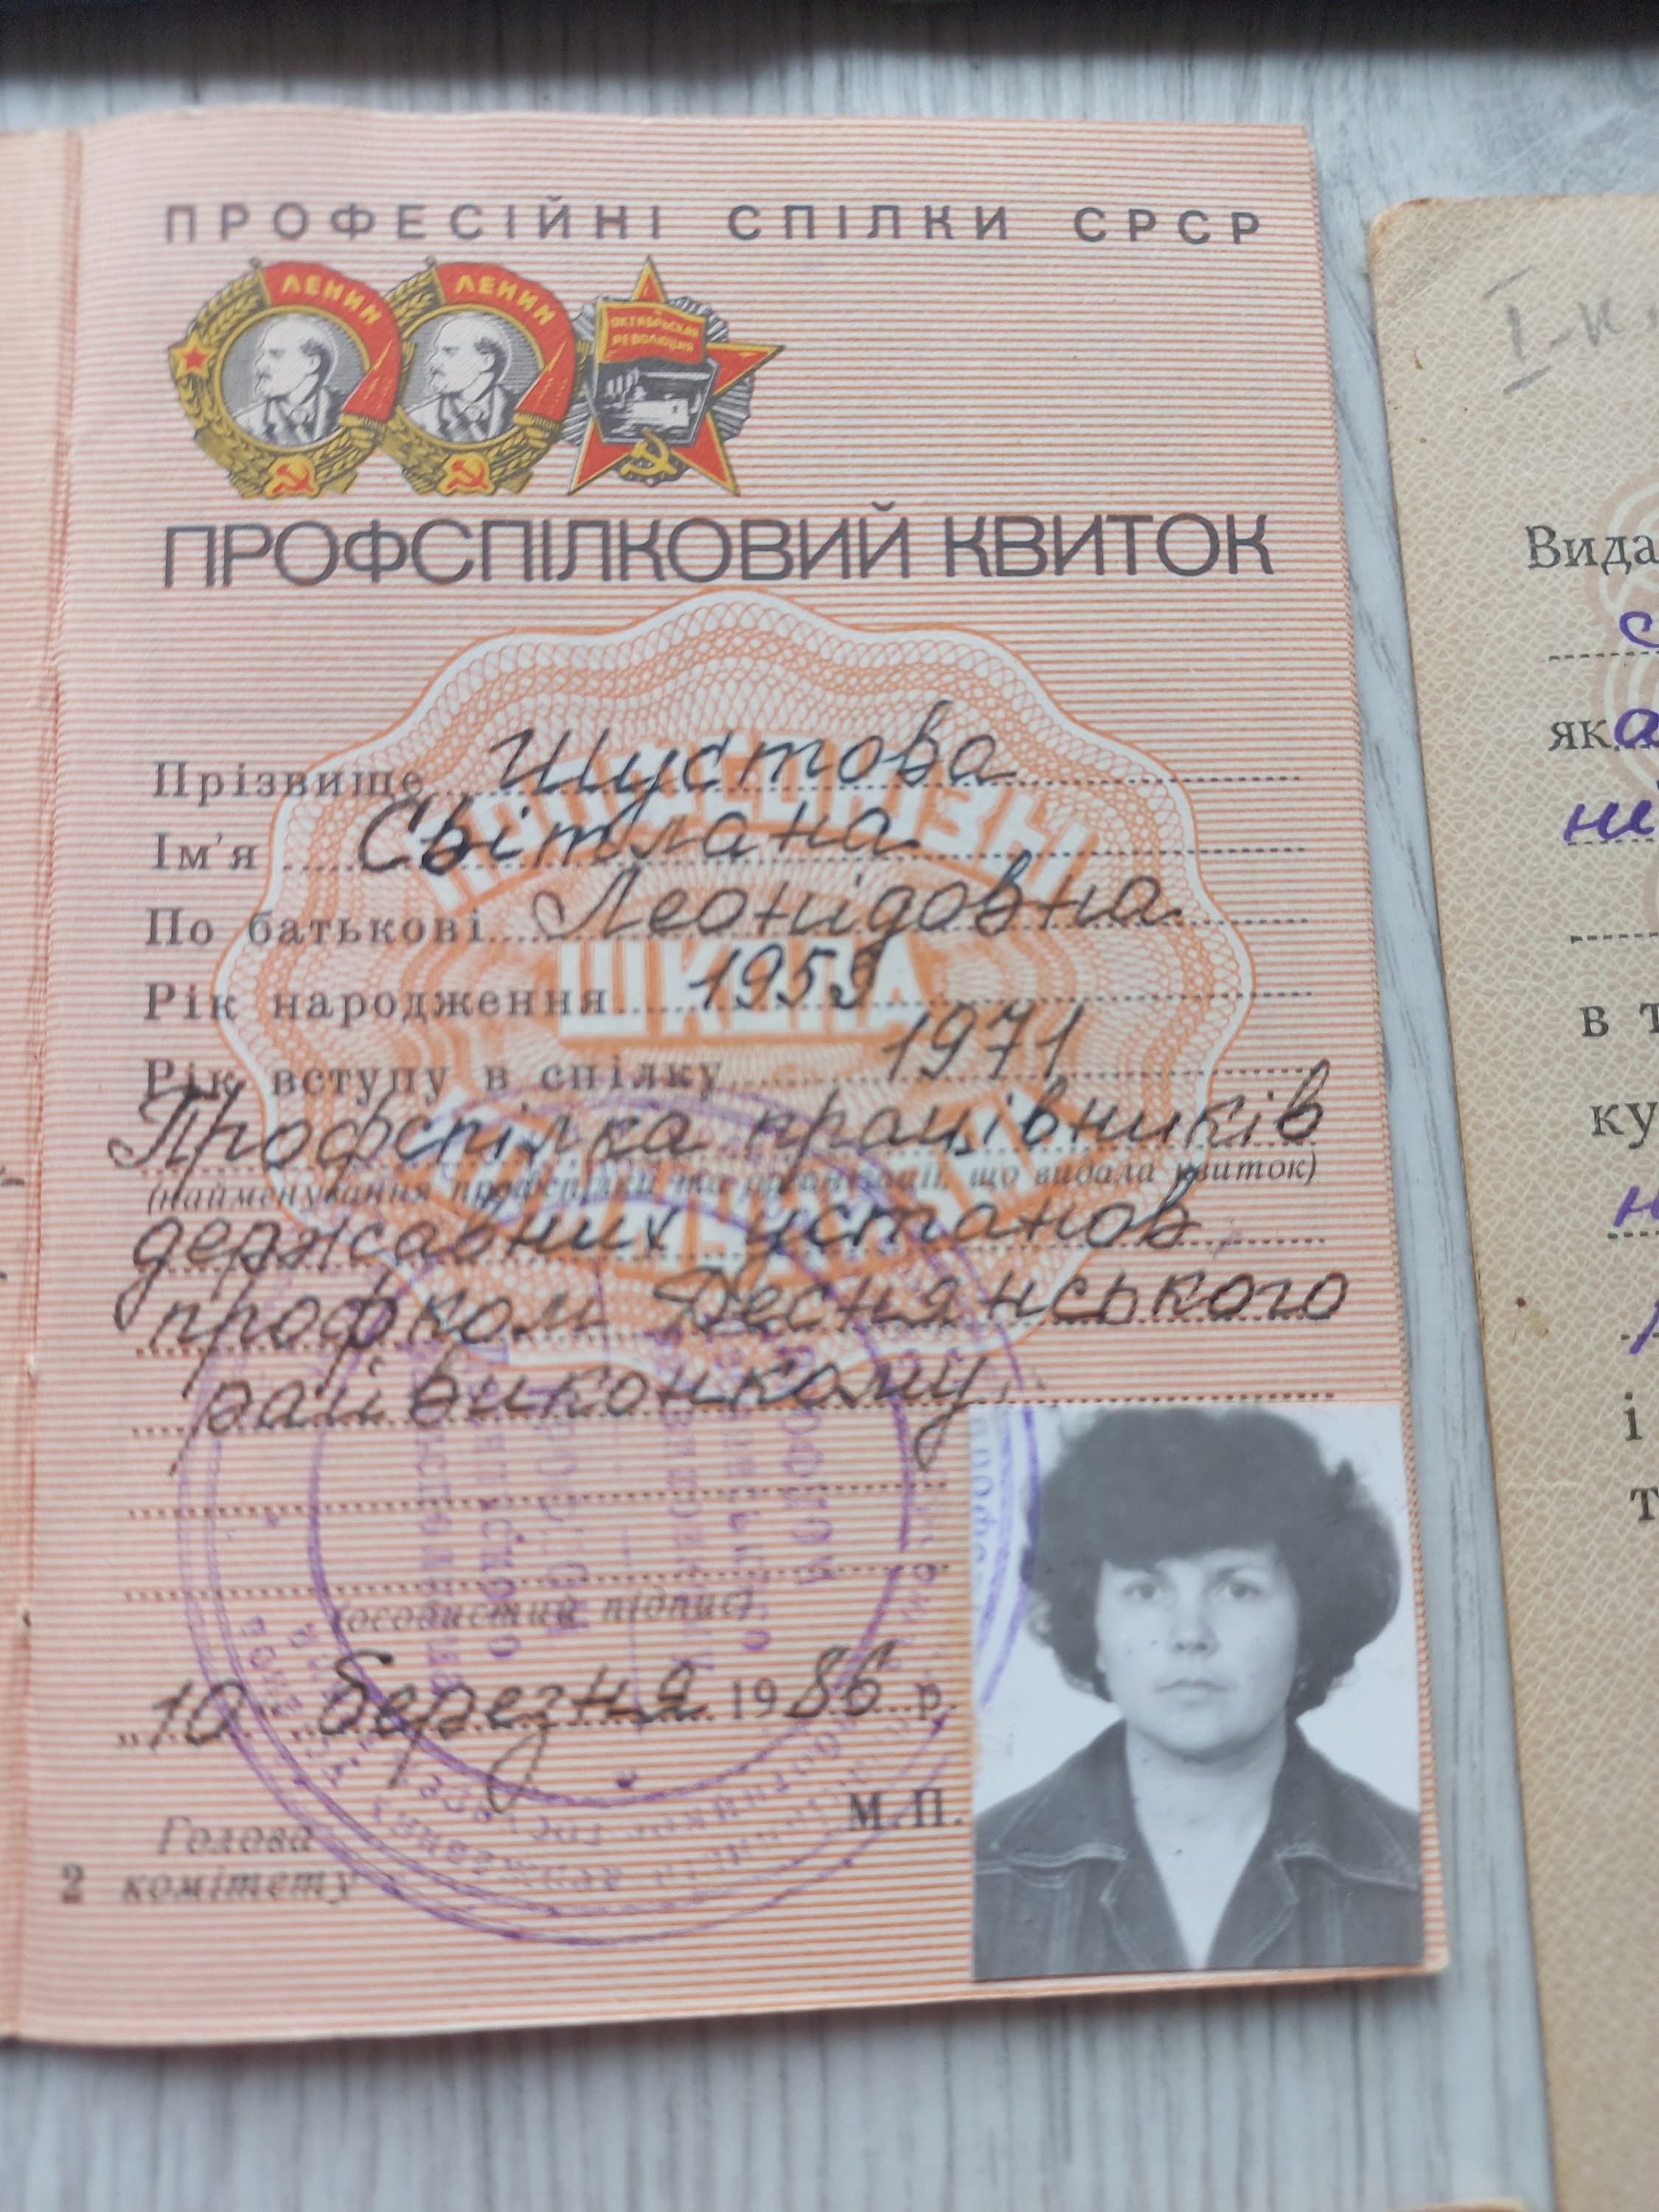 ПРОФЕСІЙНІ СПІЛКИ СРСР
ЛЕНИН ЛЕНИН ОКТЯБРЬСКАЯ РЕВОЛЮЦИЯ
ПРОФСПІЛКОВИЙ КВИТОК
Прізвище Шустова
Ім'я Світлана
По батькові Леонідовна
Рік народження 1959
Рік вступу в спілку 1971
Профспілка працівників
(найменування профспілки та організації, що видала квиток)
державних установ
профком Деснянського
райвиконкому
(особистий підпис)
„10" березня 1986 р.
М.П.
Голова
2 комітету
ШКОЛА
І-К
Вида
як а
не
в т
ку
і
т